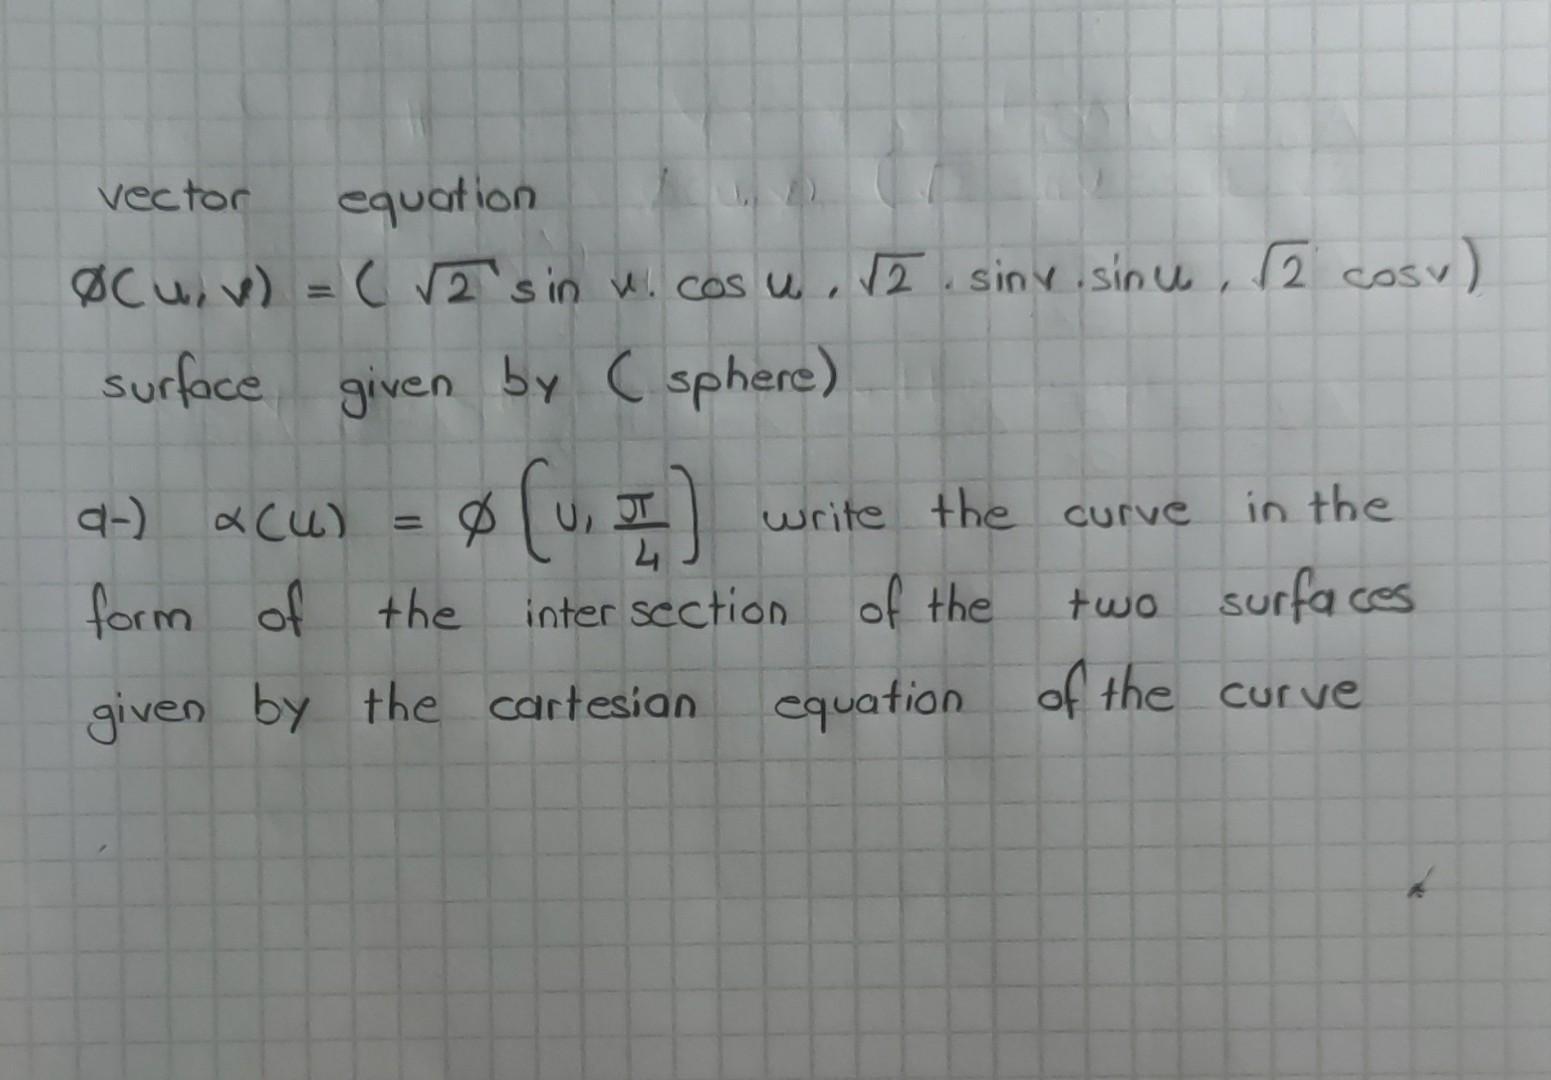 vector equation
ø(u, v) = ( √2 sin v. cos u, √2 . sinv . sinu, √2 cosv)
surface given by ( sphere)
a-) α(u) = ø [u, π/4] write the curve in the
form of the intersection of the two surfaces
given by the cartesian equation of the curve